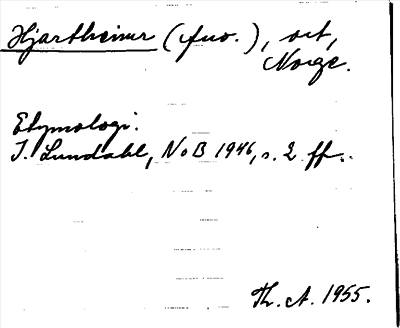 Hjartheimr (fno.), ort,
Norge.
Etymologi.
I. Lundahl, NoB 1946, s. 2 ff.
Th. A. 1955.